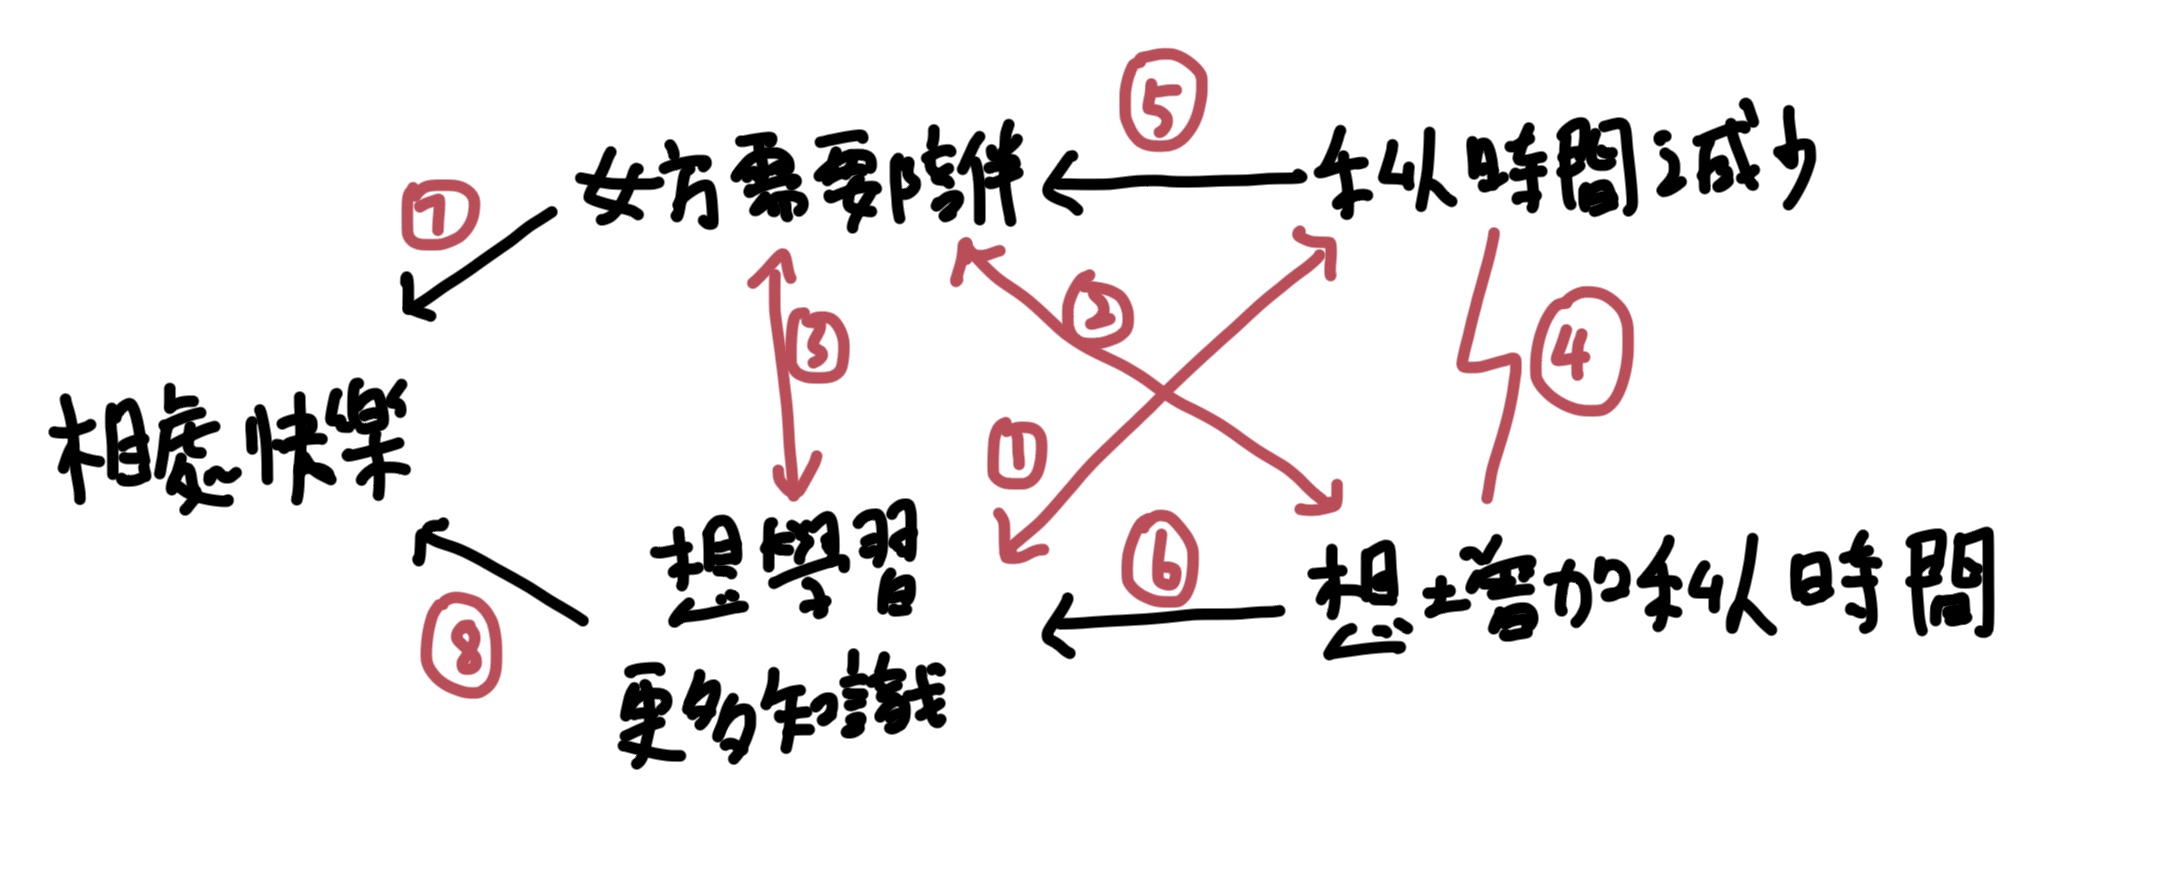 ⑤
女方需要陪伴
私人時間減少
⑦
②
③
④
相處快樂
①
⑥
想學習
更多知識
想增加私人時間
⑧